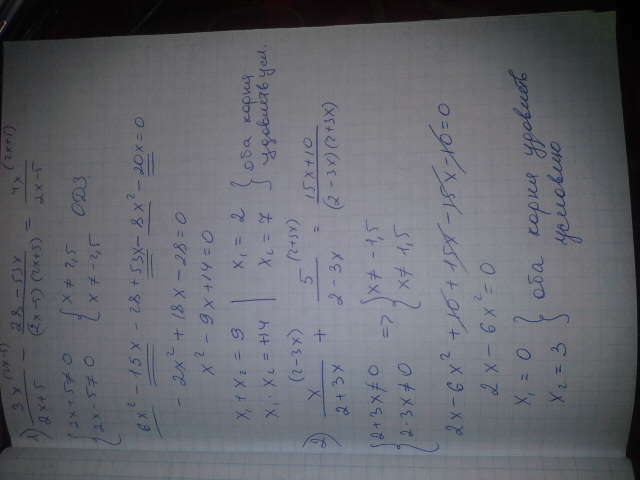 1) 3x^(2x-5) / 2x+5 − 28-53x / (2x-5)(2x+5) = 4x^(2x+5) / 2x-5
{ 2x+5≠0 { x ≠ 2,5 ОДЗ
2x-5≠0 x ≠ -2,5
6x² - 15x - 28 + 53x - 8x² - 20x = 0
- 2x² + 18x - 28 = 0
x² - 9x + 14 = 0
x₁ + x₂ = 9 | x₁ = 2 } оба корня
x₁ · x₂ = +14 | x₂ = 7 удовлетв усл.
2) x^(2-3x) / 2+3x + 5^(2+3x) / 2-3x = 15x+10 / (2-3x)(2+3x)
{ 2+3x≠0 => { x ≠ -1,5
2-3x≠0 x ≠ 1,5
2x - 6x² + 10 + 15x - 15x - 10 = 0
2x - 6x² = 0
x₁ = 0 } оба корня удовлетв
x₂ = 3 условию